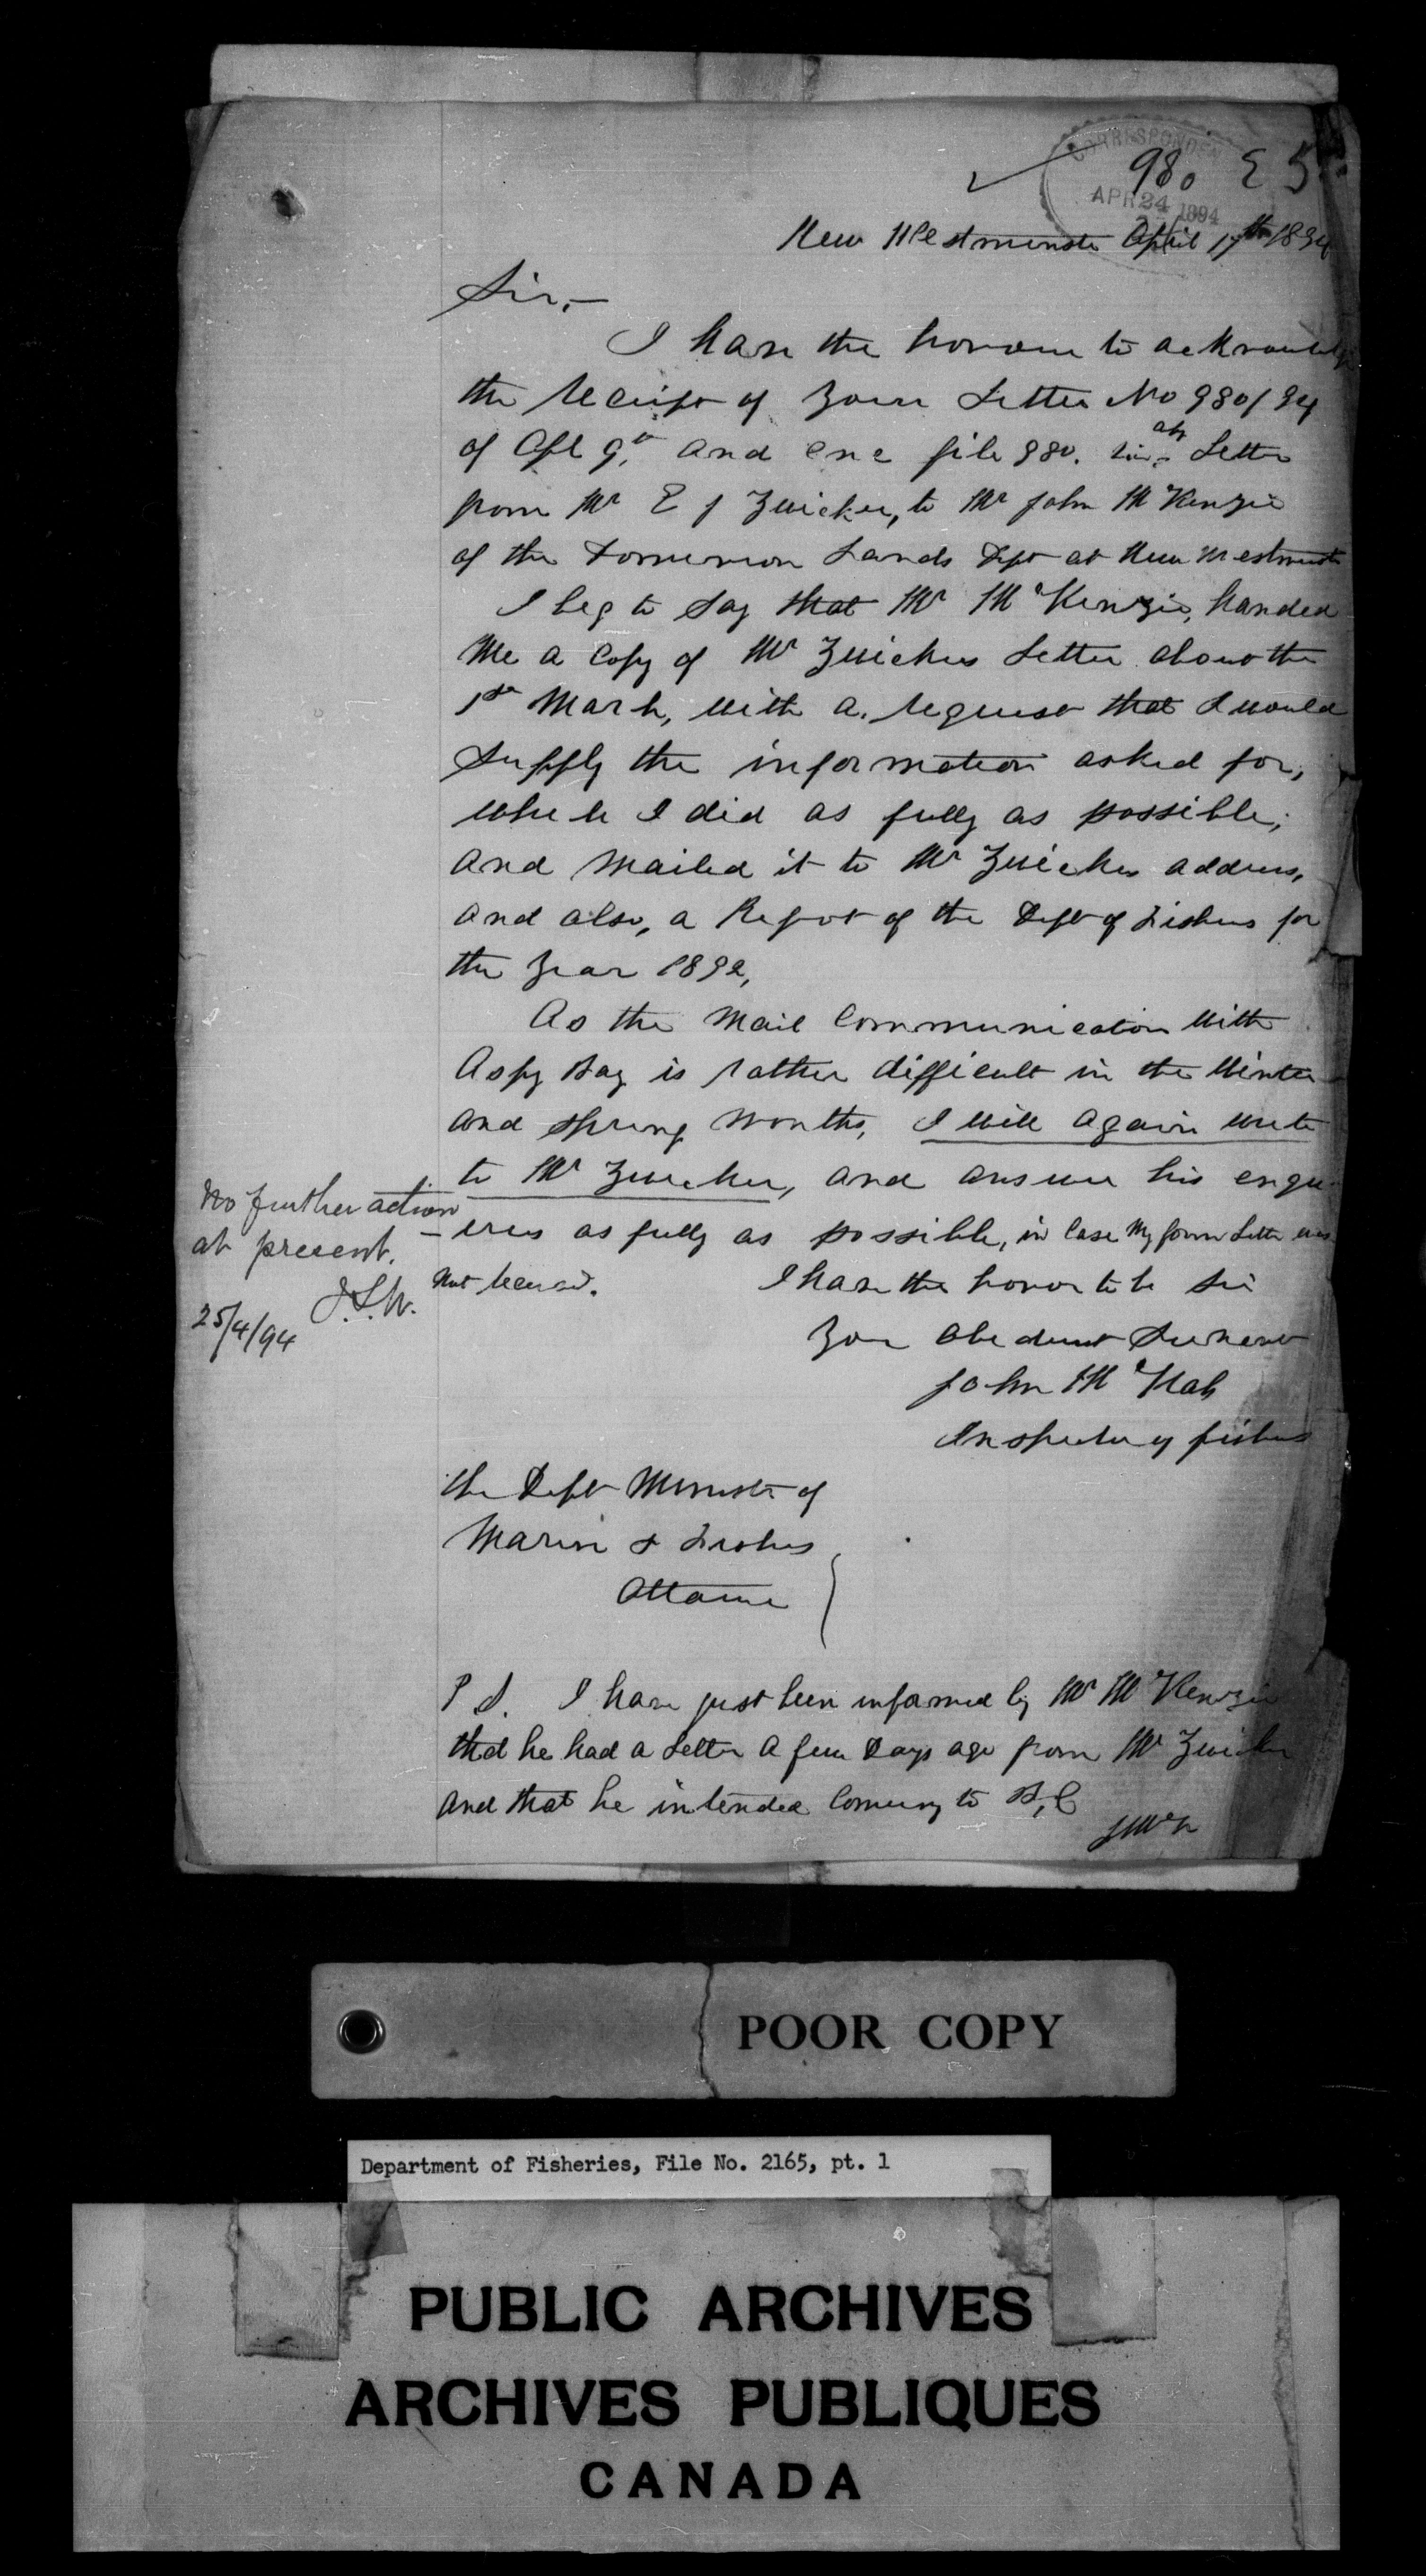 CORRESPONDEN
APR 24 1894
980 E 5
New Westminster April 17th 1894
Sir,—
I have the honour to acknowledge
the receipt of your Letter No 980/94
of Apl 9th, and enc file 980. Letter
from Mr E J Zwicker, to Mr John McKenzie
of the Dominion Lands Dept at New Westminster
I beg to say that Mr McKenzie, handed
me a Copy of Mr Zwickers Letter about the
1st March, with a request that I would
supply the information asked for,
which I did as fully as possible,
and mailed it to Mr Zwickers address,
and also, a Report of the Dept of Fisheries for
the year 1892,
As the Mail Communication with
Aspy Bay is rather difficult in the Winter
and spring months, I will again write
to Mr Zwicker, and answer his enqu-
-iries as fully as possible, in Case my former Letter was
not received.
I have the honor to be Sir
Your Obedient Servant
John McNab
Inspector of fisheries
No further action
at present.
J.S.W.
25/4/94
the Dept Minister of
Marine & Fisheries
Ottawa
P S. I have just been informed by Mr McKenzie
that he had a Letter a few Days ago from Mr Zwicker
and that he intended Coming to B,C
JMcN
POOR COPY
Department of Fisheries, File No. 2165, pt. 1
PUBLIC ARCHIVES
ARCHIVES PUBLIQUES
CANADA